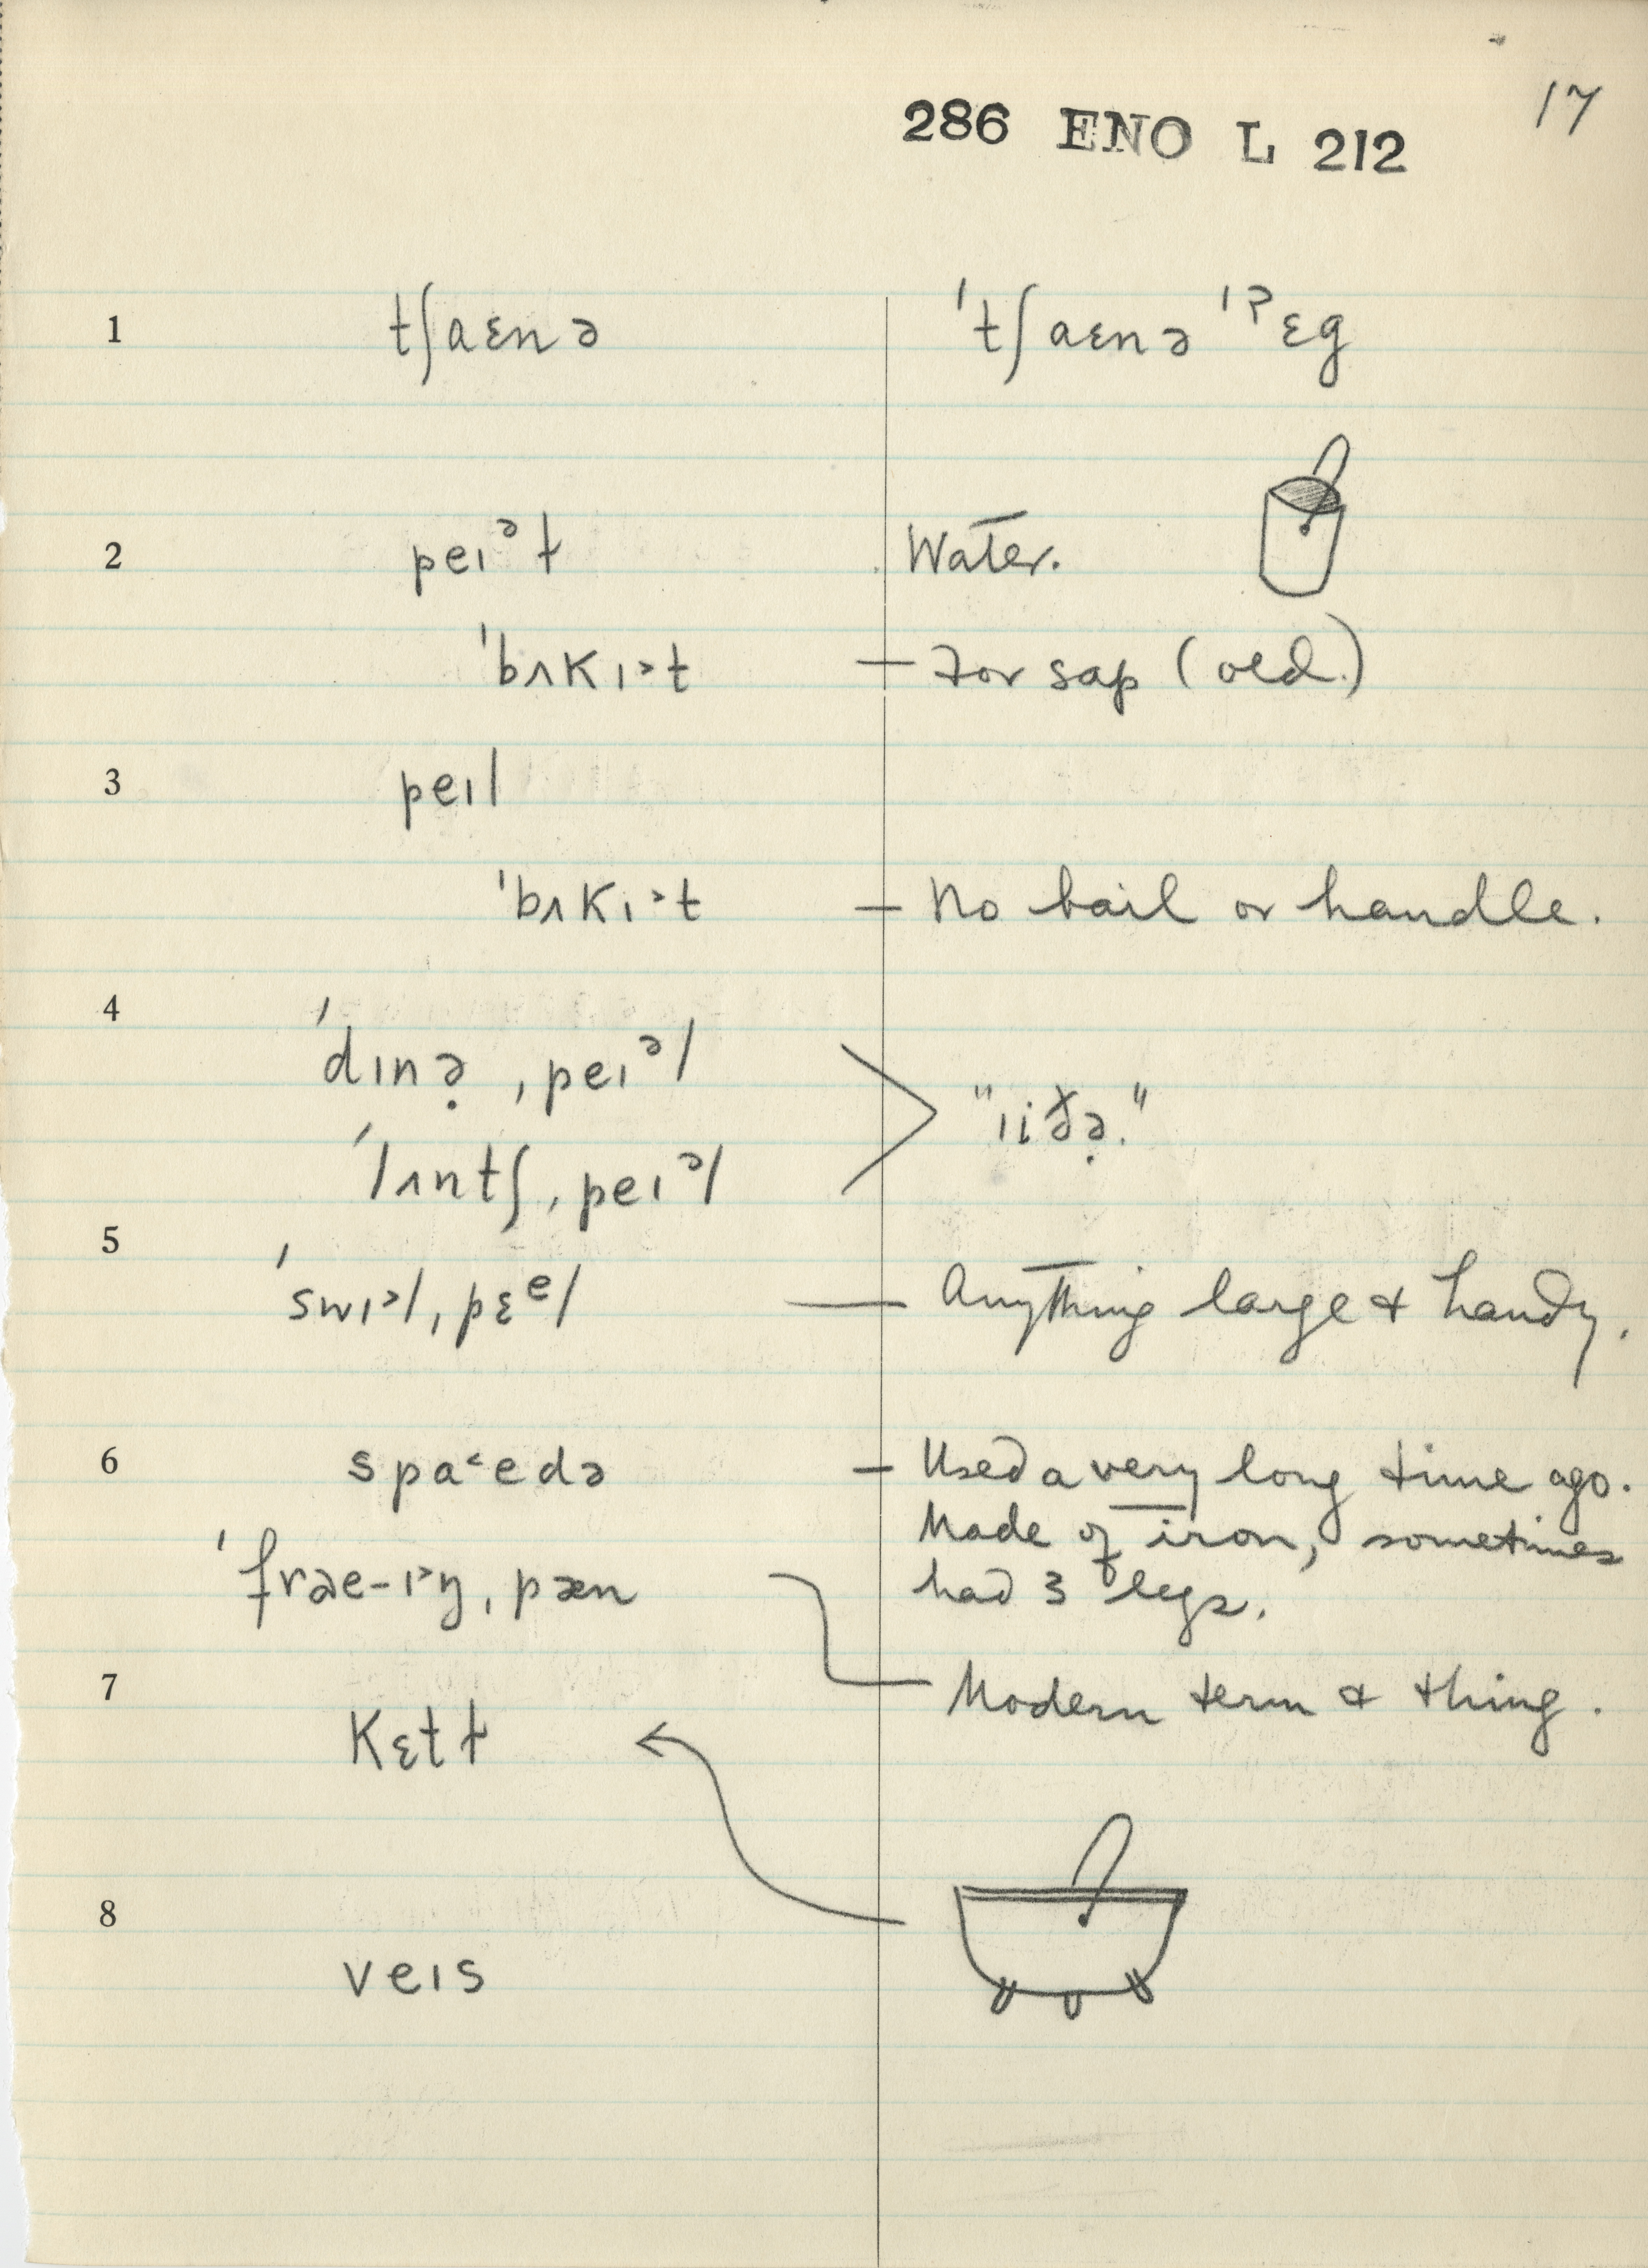 17
286 ENO L 212
1 tʃaɛnə ˈtʃaɛnə ˈˀɛg
2 peɪᵊɫ Water.
ˈbʌkɪ˃t — For sap (old.)
3 peɪl
ˈbʌkɪ˃t — No bail or handle.
4
ˈdɪnə̣ ˌpeɪᵊl
"iiðə̣."
ˈlʌntʃ ˌpeɪᵊl
5
ˈswɪ˃l ˌpɛᵉl — Anything large & handy.
6 spa˂edə — Used a very long time ago.
Made of iron, sometimes
ˈfrɑe-ɪ˃ŋ ˌpæn had 3 legs.
7 Modern term & thing.
Kɛtɫ
8
veɪs